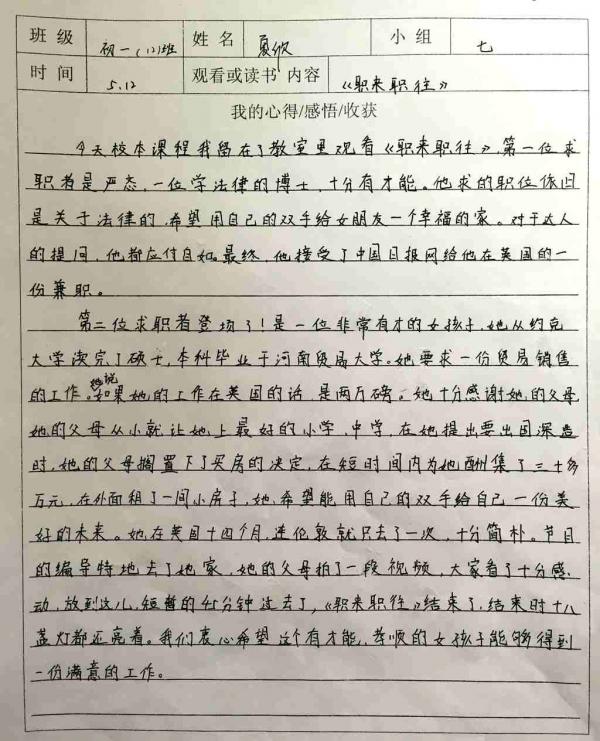 班级 初一(12)班 姓名 夏攸 小组 七
时间 5.12 观看或读书内容 《职来职往》
我的心得/感悟/收获
今天校本课程我留在了教室里观看《职来职往》,第一位求
职者是严态,一位学法律的博士,十分有才能。他求的职位依旧
是关于法律的,希望用自己的双手给女朋友一个幸福的家。对于达人
的提问,他都应付自如。最终,他接受了中国日报网给他在英国的一
份兼职。
第二位求职者登场了!是一位非常有才的女孩子,她从约克
大学读完了硕士,本科毕业于河南贸易大学。她要求一份贸易销售
的工作。她说如果她的工作在英国的话,是两万磅。她十分感谢她的父母
她的父母从小就让她上最好的小学,中学,在她提出要出国深造
时,她的父母搁置下了买房的决定,在短时间内为她酬集了三十多
万元,在外面租了一间小房子,她希望能用自己的双手给自己一份美
好的未来。她在英国十四个月,连伦敦就只去了一次,十分简朴。节目
的编导特地去了她家,她的父母拍了一段视频,大家看了十分感
动,放到这儿,短暂的45分钟过去了,《职来职往》结束了,结束时十八
盏灯都还亮着。我们衷心希望这个有才能,孝顺的女孩子能够得到
一份满意的工作。